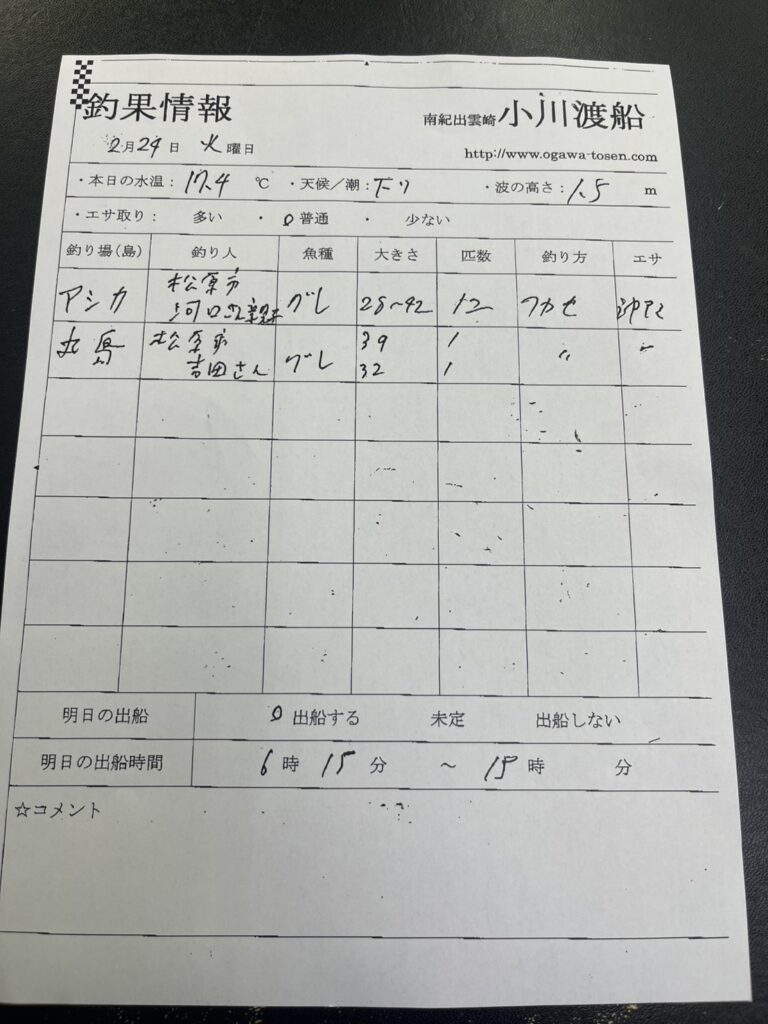 釣果情報
南紀出雲崎 小川渡船
2月24日 火曜日
http://www.ogawa-tosen.com
・本日の水温：17.4 ℃ ・天候／潮：下り ・波の高さ：1.5 m
・エサ取り： 多い ・ 0 普通 ・ 少ない
釣り場（島） 釣り人 魚種 大きさ 匹数 釣り方 エサ
アシカ 松原市 河口さん グレ 28〜42 12 フカセ
丸島 松原市 吉田さん グレ 39 1 〃 〃
32 1
明日の出船 0 出船する 未定 出船しない
明日の出船時間 6時 15分 ～ 15時 分
☆コメント